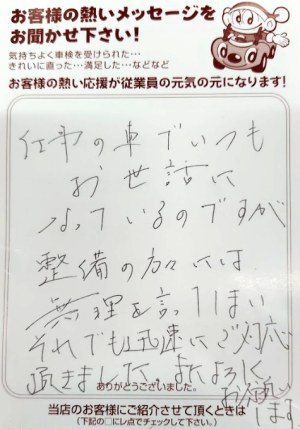 お客様の熱いメッセージを
お聞かせ下さい！
気持ちよく車検を受けられた…
きれいに直った…満足した…などなど
お客様の熱い応援が従業員の元気の元になります！
仕事の車でいつも
お世話に
なっているのですが
整備の方々には
無理を言ってしまい
それでも迅速にご対応
頂きました。またよろしく
お願い
します
ありがとうございました。
当店のお客様にご紹介させて頂くときは
（下記の□にレ点でチェックして下さい。）